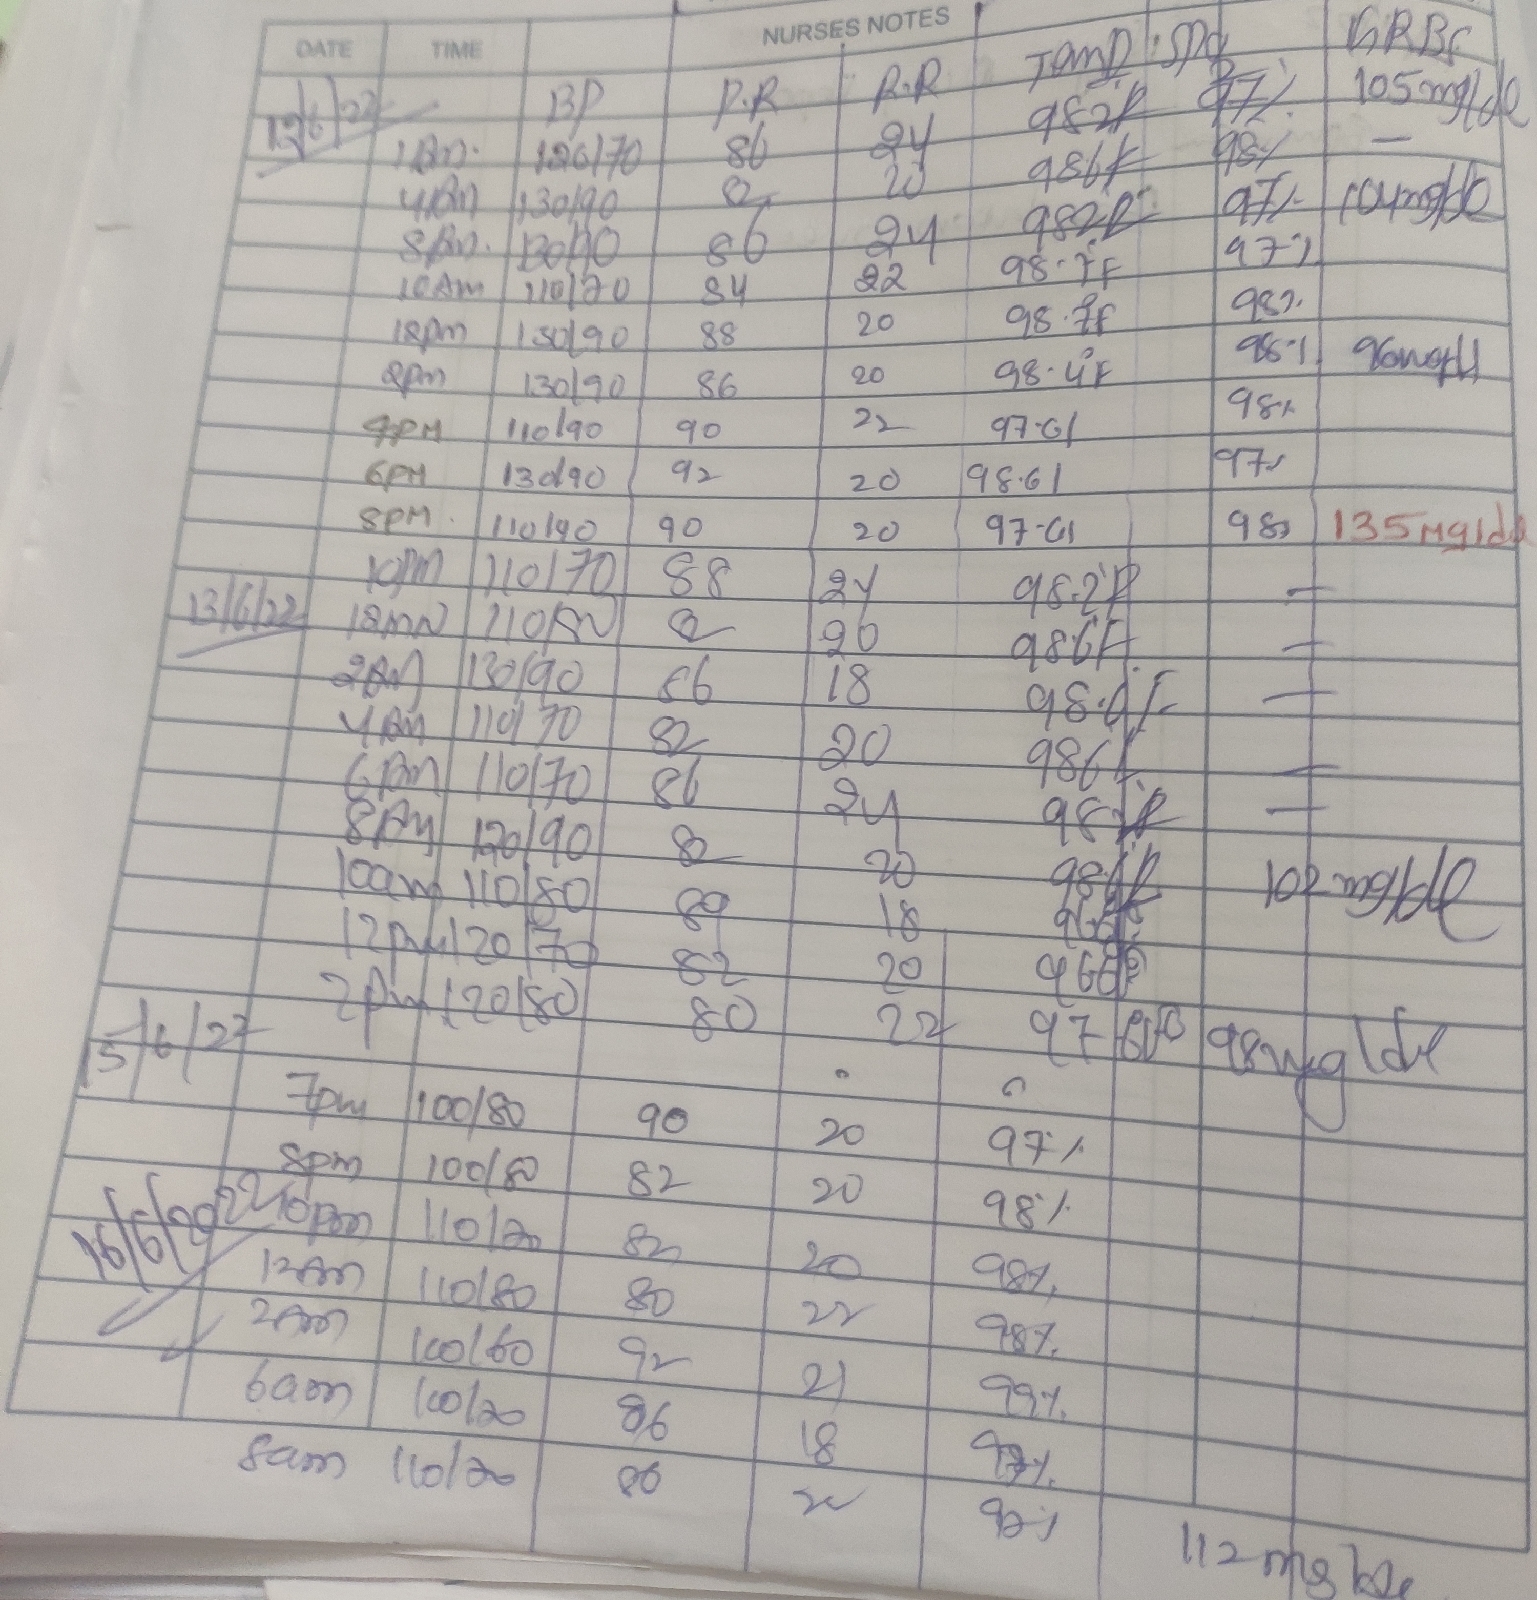 NURSES NOTES
DATE TIME BP P.R R.R Temp SPO2 GRBS
12/6/22 97% 105mg/dl
1Am. 126/70 86 24 98.2°F 98% —
4Am 130/90 82 20 98.6F 97% 104mg/dl
8Am. 130/90 86 24 98.2F 97%
10Am 110/70 84 22 98.7F 98%
12pm 130/90 88 20 98.7F 98% 96mg/dl
2pm 130/90 86 20 98.4°F 98%
4PM 110/90 90 22 97.6F 97%
6PM 130/90 92 20 98.6F
8PM. 110/90 90 20 97.6F 98% 135mg/dl
10pm 110/70 88 24 98.2°F —
13/6/22 12MN 110/80 82 20 98.6F —
2Am 130/90 86 18 —
4Am 110/70 82 20 98.6F —
6Am 110/70 86 24 98.2F —
8Am 120/90 82 20 98.6F 102mg/dl
10am 110/80 89 18
12pm 120/70 82 20
2pm 120/80 80 22 97 98mg/dl
15/6/22
7pm 100/80 90 20 97%
8pm 100/80 82 20 98%
10pm 110/70 82 20 98%
16/6/2022 12Am 110/80 80 22 98%
2Am 100/60 92 21 99%
6am 100/70 86 18 97%
8am 110/70 86 97%
112mg/dl